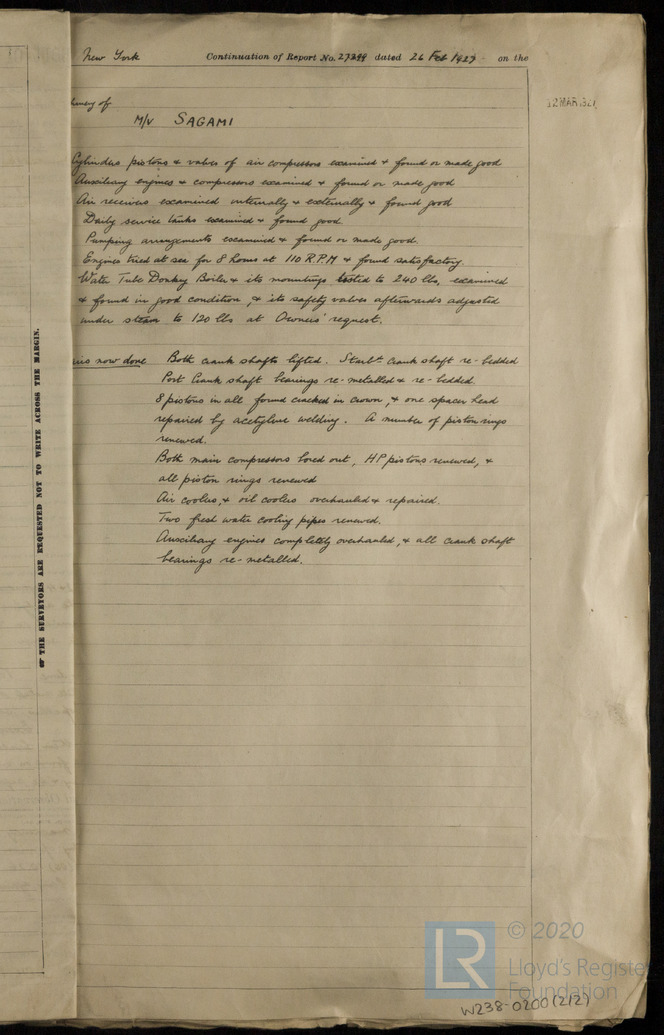 New York Continuation of Report No. 27299 dated 26 Feb 1927 on the
12 MAR 1927
M/V SAGAMI
Cylinders pistons & valves of air compressors examined & found or made good
Auxiliary engines & compressors examined & found or made good
Air receivers examined internally & externally & found good
Daily service tanks examined & found good
Pumping arrangements examined & found or made good.
Engines tried at sea for 8 hours at 110 R.P.M & found satisfactory.
Water Tube Donkey Boiler & its mountings tested to 240 lbs, examined
& found in good condition, & its safety valves afterwards adjusted
under steam to 120 lbs at Owners' request.
now done Both crank shafts lifted. Starbd. crank shaft re-bedded
Port Crank shaft bearings re-metalled & re-bedded.
8 pistons in all found cracked in crown, & one spacer head
repaired by acetylene welding. A number of piston rings
renewed.
Both main compressors bored out, HP pistons renewed, &
all piston rings renewed
Air coolers, & oil coolers overhauled & repaired.
Two fresh water cooling pipes renewed.
Auxiliary engines completely overhauled, & all crank shaft
bearings re-metalled.
THE SURVEYORS ARE REQUESTED NOT TO WRITE ACROSS THE MARGIN.
LR
© 2020
Lloyd's Register
Foundation
W238-0200(2/2)